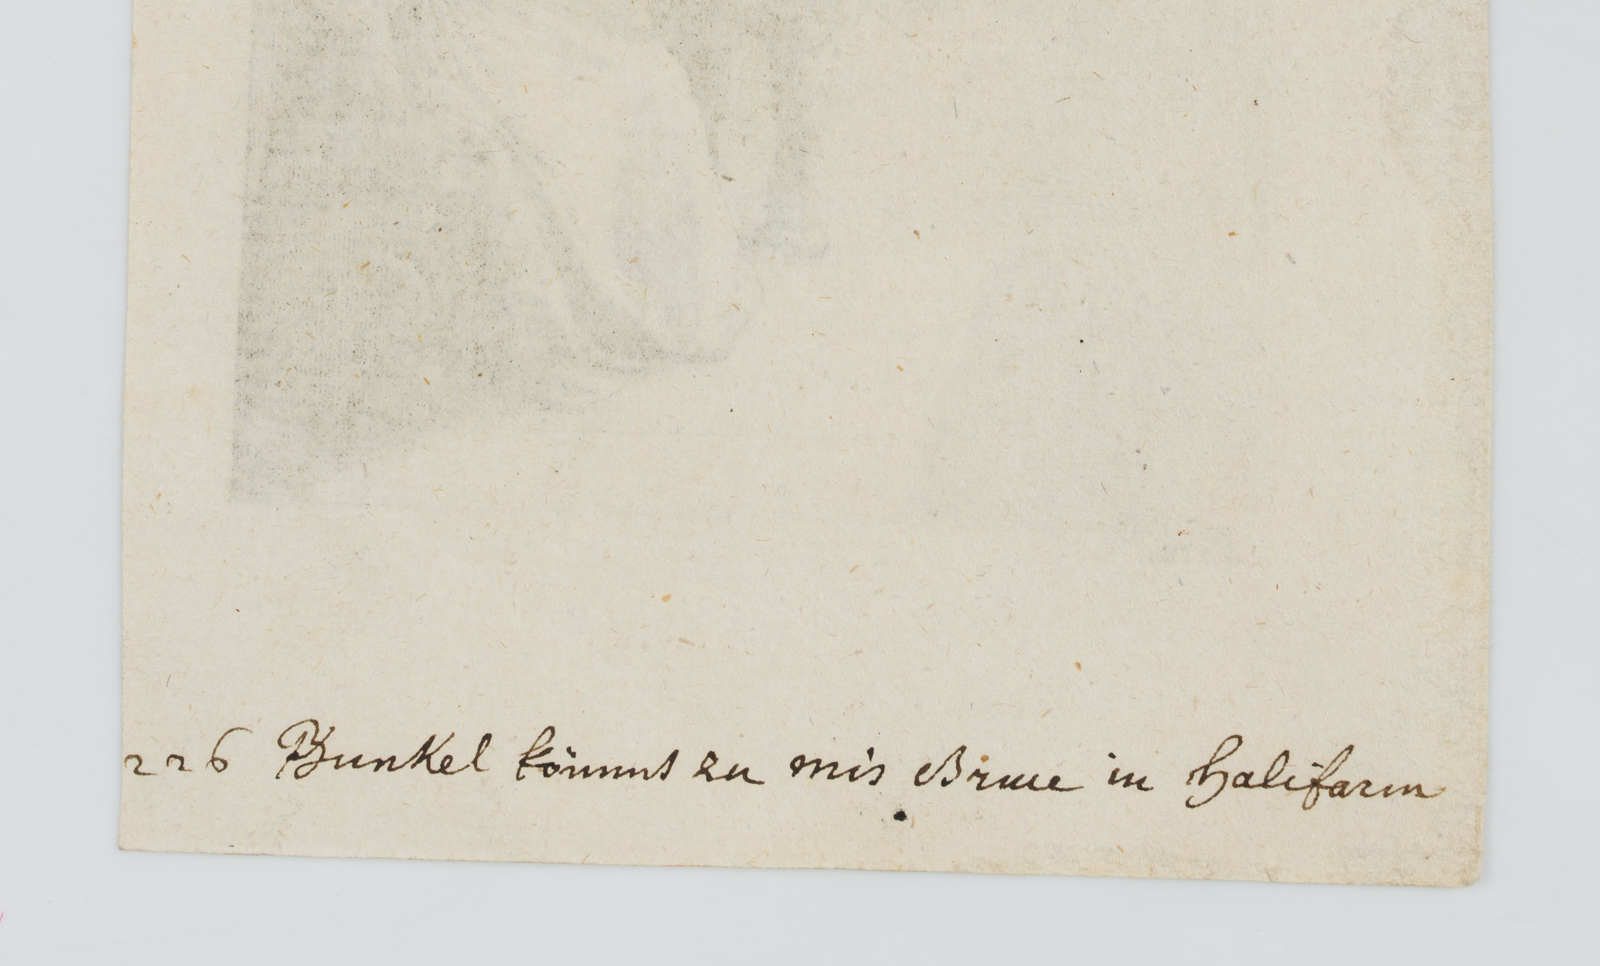 226 Bunkel kömmt zu mis Brwe in Halifarm